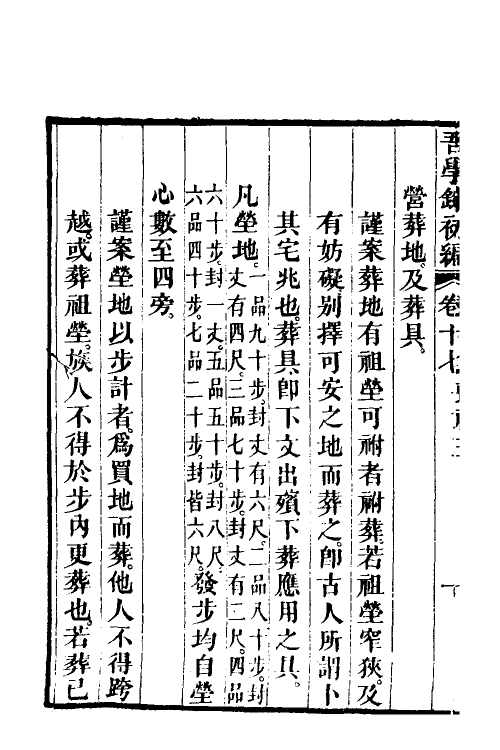 吾學錄初編 卷十七
營葬地。及葬具。
謹案葬地有祖塋可祔者祔葬。若祖塋窄狹。及
有妨礙别擇可安之地而葬之。卽古人所謂卜
其宅兆也。葬具卽下文出殯下葬應用之具。
凡塋地。一品九十步。封丈有六尺。二品八十步。封
丈有四尺。三品七十步。封丈有二尺。四品
六十步。封一丈。五品五十步。封八尺。
六品四十步。七品二十步。封皆六尺。發步均自塋
心數至四旁。
謹案塋地以步計者。爲買地而葬。他人不得跨
越。或葬祖塋。族人不得於步內更葬也。若葬已